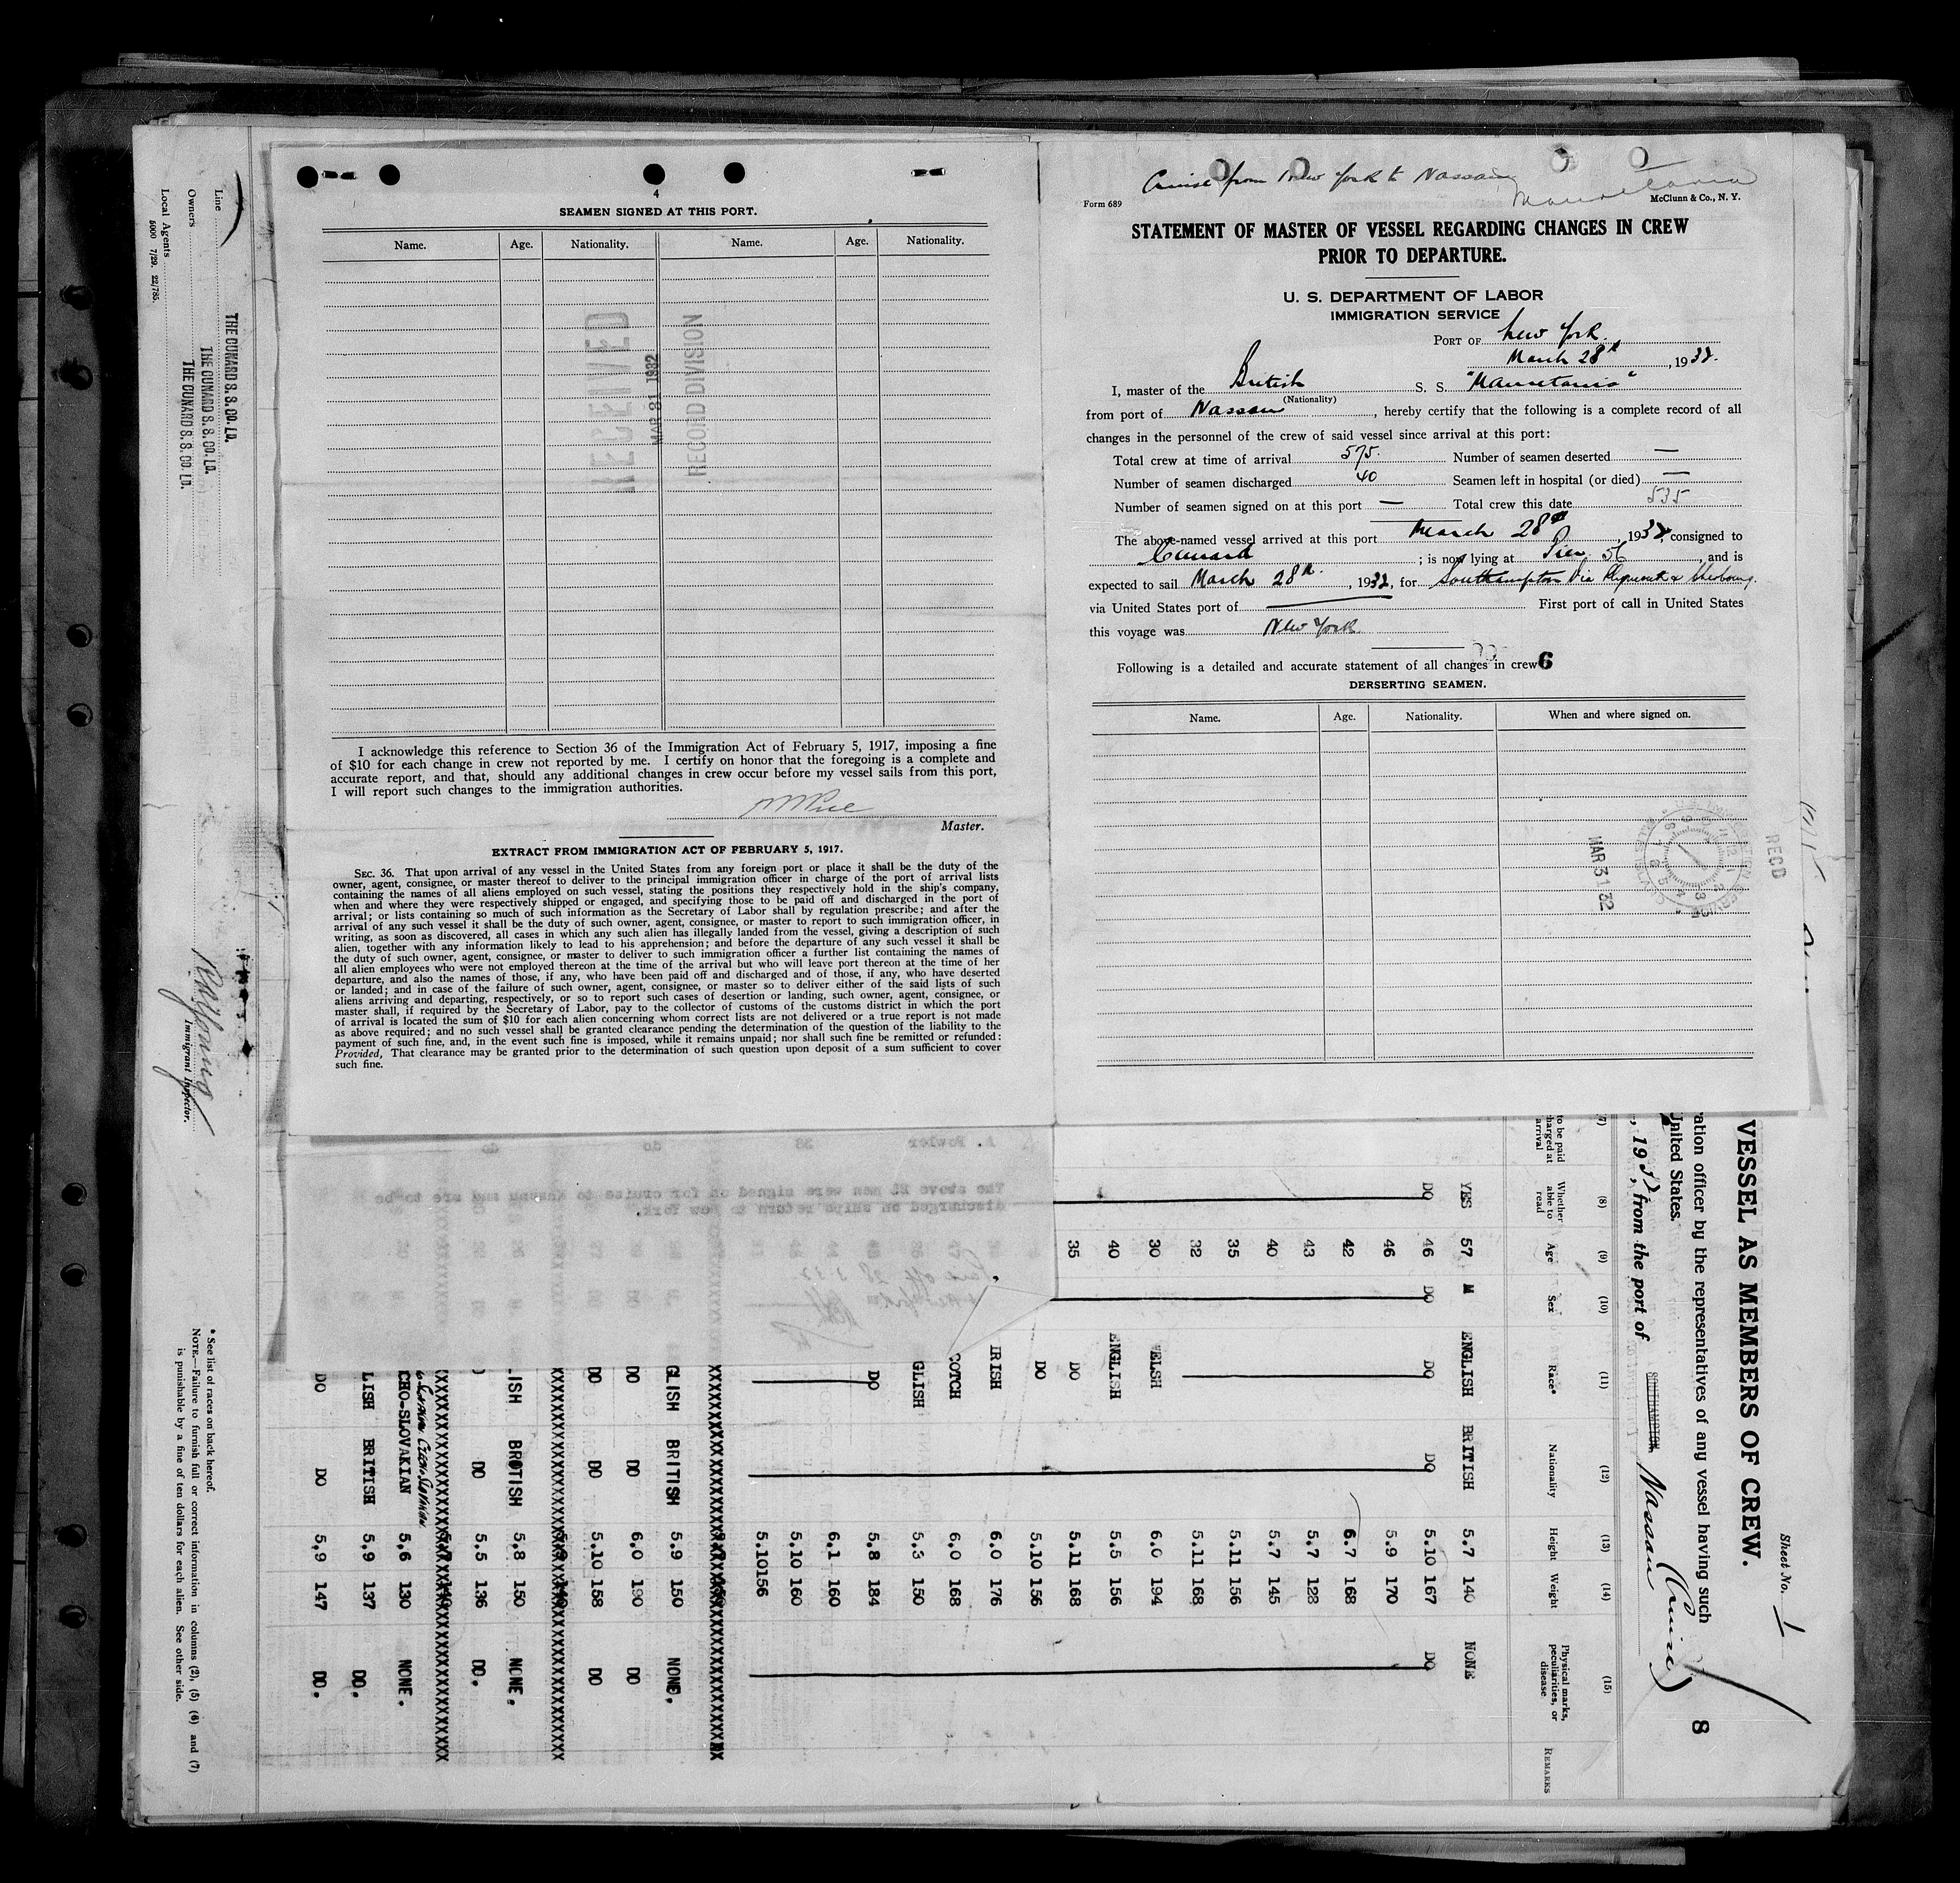 4
SEAMEN SIGNED AT THIS PORT.
Name. Age. Nationality. Name. Age. Nationality.
RECEIVED
MAR 31 1932
RECORD DIVISION
I acknowledge this reference to Section 36 of the Immigration Act of February 5, 1917, imposing a fine
of $10 for each change in crew not reported by me. I certify on honor that the foregoing is a complete and
accurate report, and that, should any additional changes in crew occur before my vessel sails from this port,
I will report such changes to the immigration authorities.
Master.
EXTRACT FROM IMMIGRATION ACT OF FEBRUARY 5, 1917.
SEC. 36. That upon arrival of any vessel in the United States from any foreign port or place it shall be the duty of the
owner, agent, consignee, or master thereof to deliver to the principal immigration officer in charge of the port of arrival lists
containing the names of all aliens employed on such vessel, stating the positions they respectively hold in the ship's company,
when and where they were respectively shipped or engaged, and specifying those to be paid off and discharged in the port of
arrival; or lists containing so much of such information as the Secretary of Labor shall by regulation prescribe; and after the
arrival of any such vessel it shall be the duty of such owner, agent, consignee, or master to report to such immigration officer, in
writing, as soon as discovered, all cases in which any such alien has illegally landed from the vessel, giving a description of such
alien, together with any information likely to lead to his apprehension; and before the departure of any such vessel it shall be
the duty of such owner, agent, consignee, or master to deliver to such immigration officer a further list containing the names of
all alien employees who were not employed thereon at the time of the arrival but who will leave port thereon at the time of her
departure, and also the names of those, if any, who have been paid off and discharged and of those, if any, who have deserted
or landed; and in case of the failure of such owner, agent, consignee, or master so to deliver either of the said lists of such
aliens arriving and departing, respectively, or so to report such cases of desertion or landing, such owner, agent, consignee, or
master shall, if required by the Secretary of Labor, pay to the collector of customs of the customs district in which the port
of arrival is located the sum of $10 for each alien concerning whom correct lists are not delivered or a true report is not made
as above required; and no such vessel shall be granted clearance pending the determination of the question of the liability to the
payment of such fine, and, in the event such fine is imposed, while it remains unpaid; nor shall such fine be remitted or refunded:
Provided, That clearance may be granted prior to the determination of such question upon deposit of a sum sufficient to cover
such fine.
Cruise from New York to Nassau
Mauretania
Form 689 McClunn & Co., N. Y.
STATEMENT OF MASTER OF VESSEL REGARDING CHANGES IN CREW
PRIOR TO DEPARTURE.
U. S. DEPARTMENT OF LABOR
IMMIGRATION SERVICE
PORT OF New York
March 28th, 1932.
I, master of the British S. S. "Mauretania"
(Nationality)
from port of Nassau, hereby certify that the following is a complete record of all
changes in the personnel of the crew of said vessel since arrival at this port:
Total crew at time of arrival 575. Number of seamen deserted —
Number of seamen discharged 40 Seamen left in hospital (or died) —
Number of seamen signed on at this port — Total crew this date 535
The above-named vessel arrived at this port March 28th, 1932, consigned to
Cunard; is now lying at Pier 56, and is
expected to sail March 28th., 1932, for Southampton Via Plymouth & Cherbourg.
via United States port of — First port of call in United States
this voyage was New York
Following is a detailed and accurate statement of all changes in crew 6
DERSERTING SEAMEN.
Name. Age. Nationality. When and where signed on.
RECD
MAR 31 32
VESSEL AS MEMBERS OF CREW.
Sheet No. 1
8
ration officer by the representatives of any vessel having such
United States.
, 1932, from the port of SOUTHAMPTON Nassau (Cruise)
(7) (8) (9) (10) (11) (12) (13) (14) (15)
to be paid charged at arrival Whether able to read Age Sex Race* Nationality Height Weight Physical marks, peculiarities, or disease REMARKS
YES 57 M ENGLISH BRITISH 5.7 140 NONE
DO 46 DO DO DO 5.10 167 DO
46 5.9 170
42 6.7 168
43 5.7 122
40 5.7 145
35 5.11 156
32 5.11 168
30 WELSH 6.0 194
40 ENGLISH 5.5 156
35 DO 5.11 168
DO 5.10 156
IRISH 6.0 176
SCOTCH 6.0 168
GLISH 5.3 150
DO 5.8 184
6.1 160
5.10 160
5.10 156
GLISH BRITISH 5.9 150 NONE.
DO DO 6.0 190 DO
DO DO 5.10 158 DO
LISH BROTISH 5.8 150 NONE.
DO 5.5 136 DO.
CHO-SLOVAKIAN 5.6 130 NONE.
LISH BRITISH 5.9 137 DO.
DO DO 5.9 147 DO.
A. Fowler 38 do do
The above 21 men were signed on for cruise to Nassau and are to be
discharged on ships return to New York.
Line THE CUNARD S. S. CO. LD.
Owners THE CUNARD S. S. CO. LD.
Local Agents THE CUNARD S. S. CO. LD.
5000 7/29. 22/785.
Immigrant Inspector.
* See list of races on back hereof.
NOTE.—Failure to furnish full or correct information in columns (2), (5) (6) and (7)
is punishable by a fine of ten dollars for each alien. See other side.